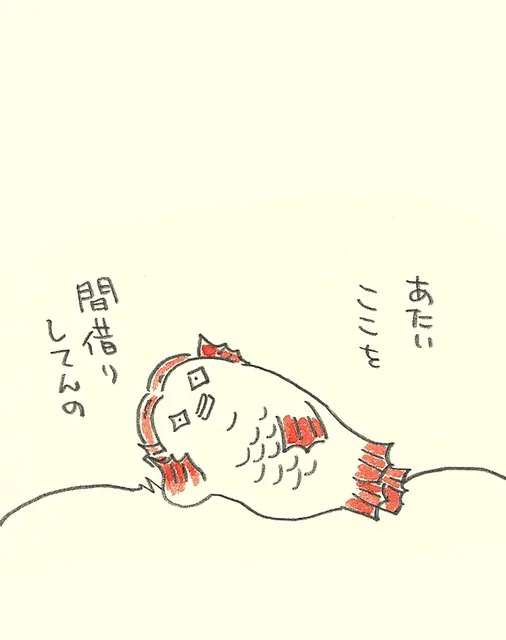 あたい
ここを
間借り
してんの